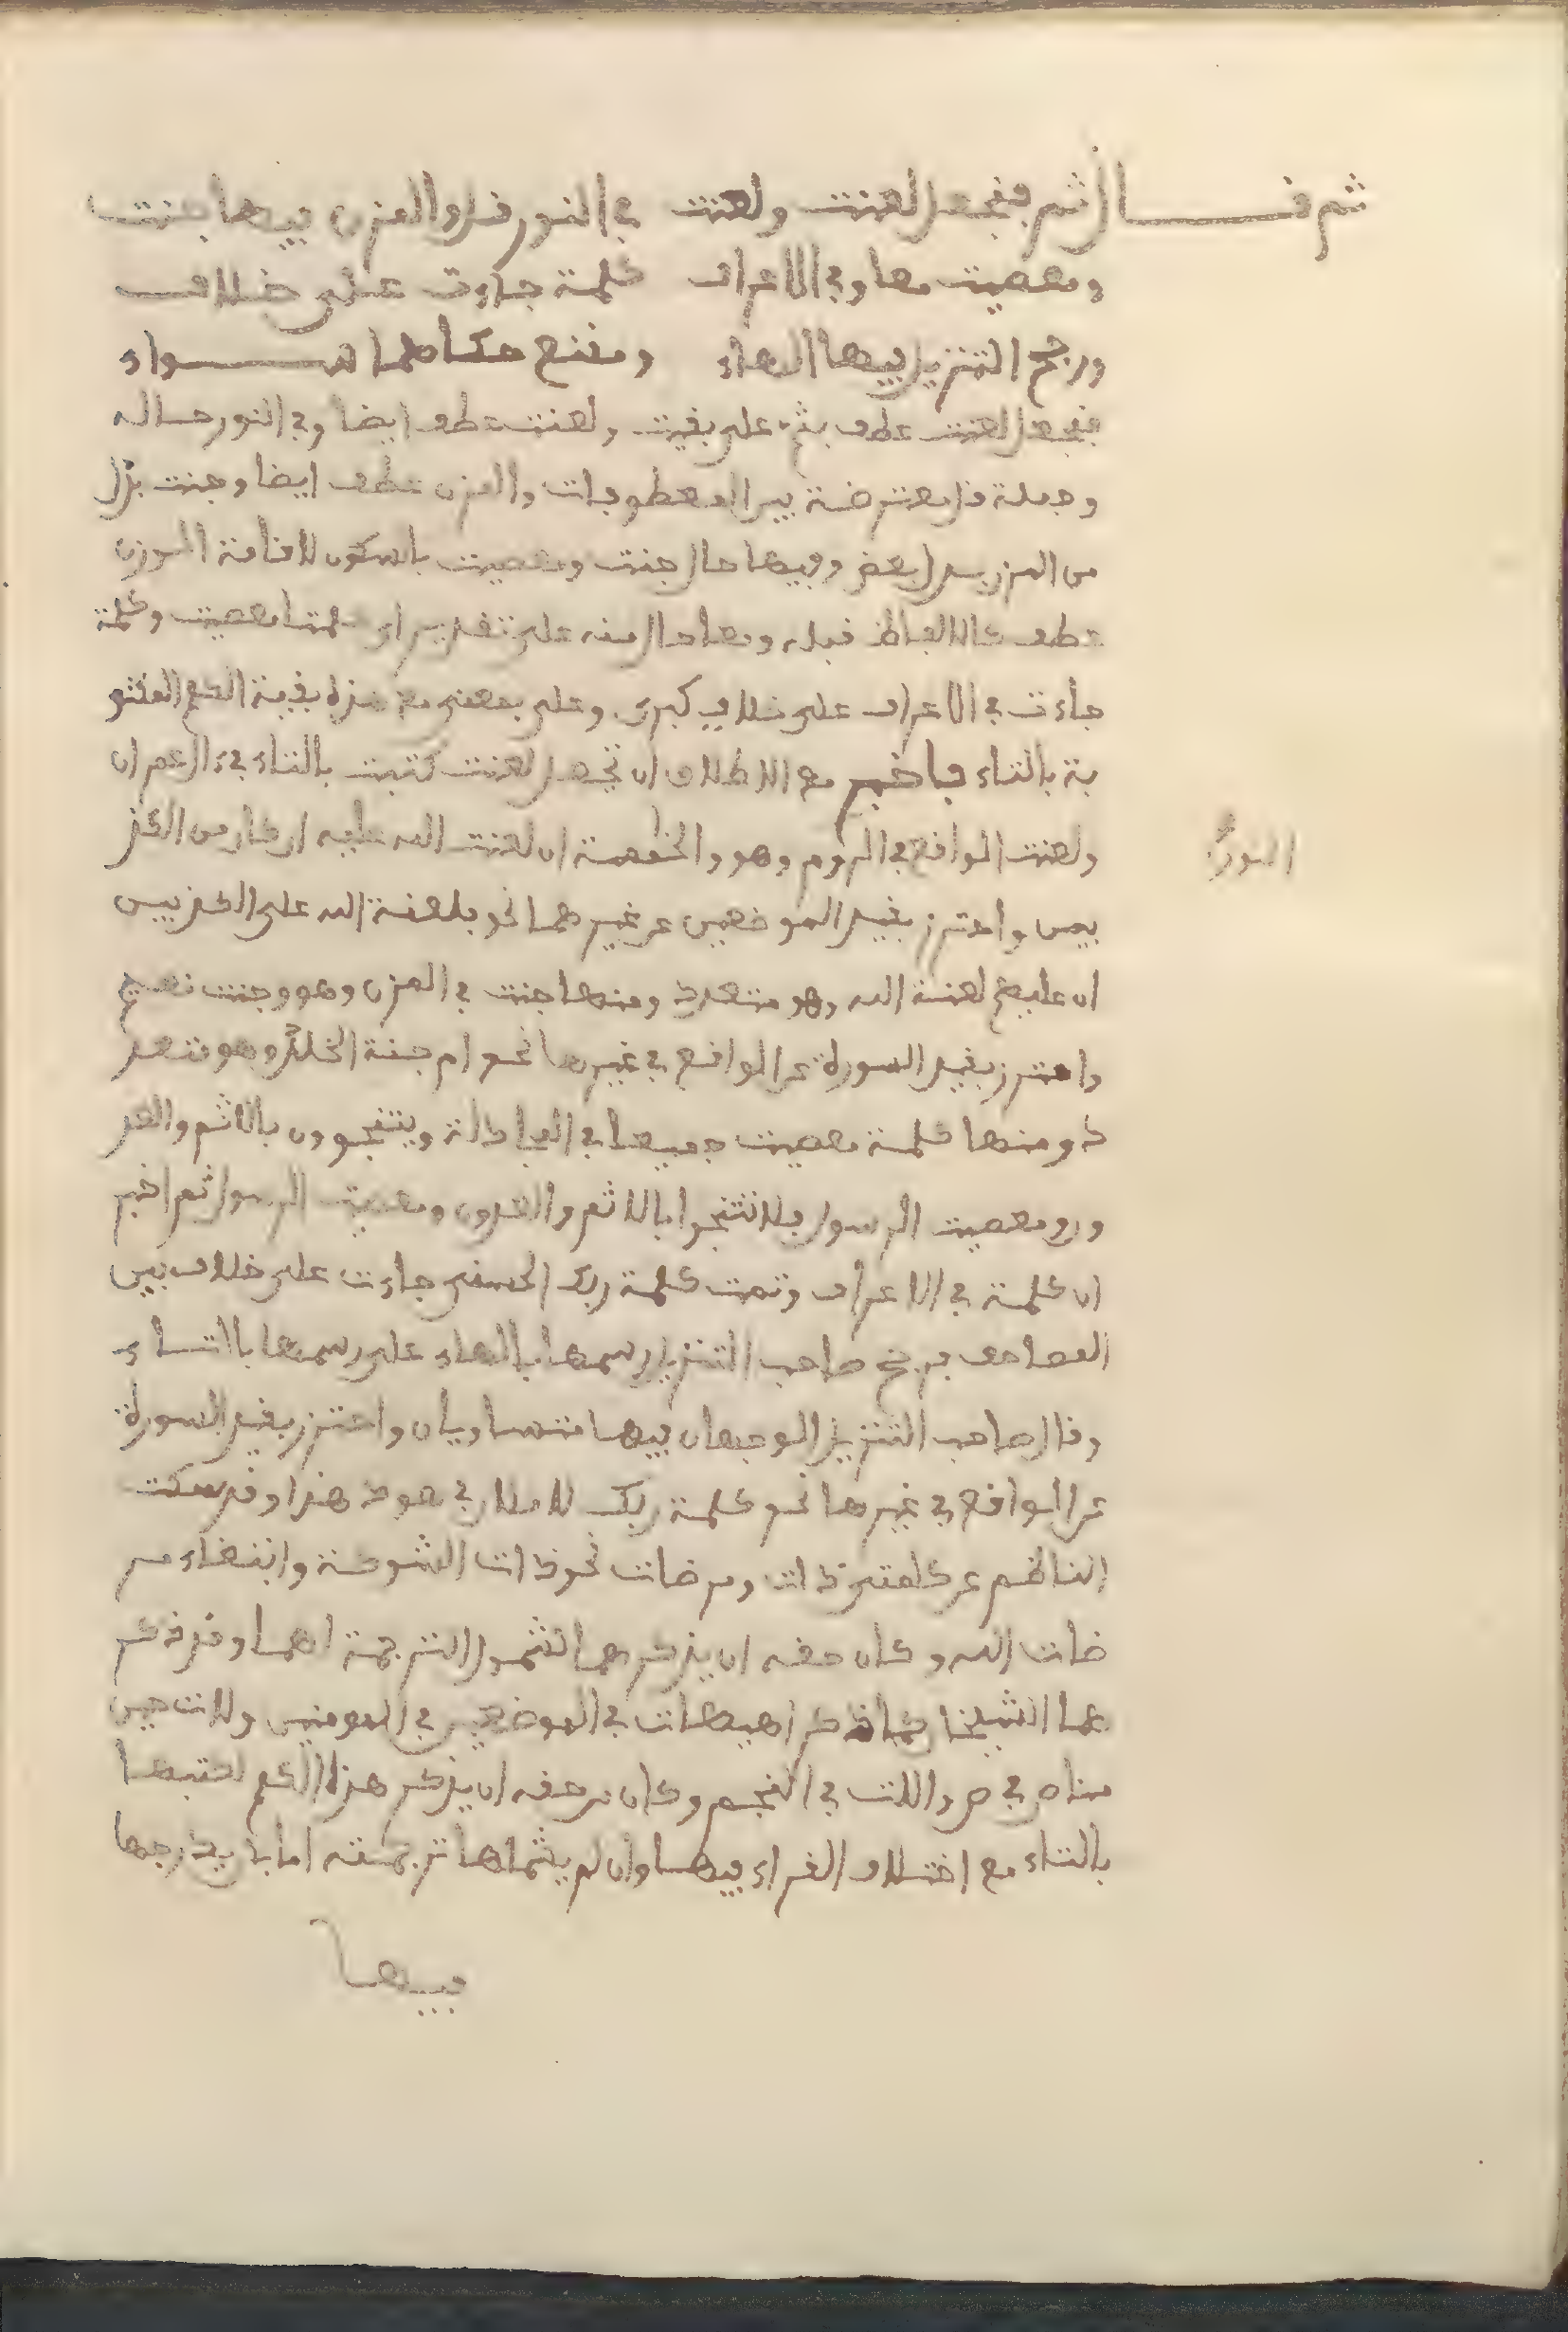 ثم قال ثم فنجعل لعنت ولعنت في النور قل والمزن فيها جنت
ومعصيت معا وفي الاعراف كلمة جاءت على خلاف
ورجح التنزيل فيها الهاء ومقنع حكاهما سواء
فنجعل لعنت عطف بثم على بقيت ولعنت عطف ايضا وفي النور حاله
وجملة قل معترضة بين المعطوفات والمزن عطف ايضا وجنت بدل
من المزن بدل بعض وفيها حال جنت ومعصيت بالسكون لاقامة الوزن
عطف كالالفاظ قبله ومعا حال منه على تقدير اي كلمتا معصيت وكلمة
جاءت في الاعراف على خلاف كبرى وعلى بمعنى مع هذه بقية الكلم المكتو
بة بالتاء فاخبر مع الاطلاق ان نجعل لعنت كتبت بالتاء في ال عمران
ولعنت الواقع في الروم وهو والخمسة ان لعنت الله عليه ان كان من الكذ
النور
بين واحترز بقيد الموضعين عن غيرهما نحو فلعنة الله على الكفرين
ان عليهم لعنة الله وهو متعدد ومنها جنت في المزن وهو وجنت نعيم
واحترز بقيد السورة عن الواقع في غيرها نحو ام جنة الخلد وهو متعد
د ومنها كلمة معصيت جميعا في المجادلة ويتنجون بالاثم والعد
ون ومعصيت الرسول فلا تتنجوا بالاثم والعدون ومعصيت الرسول ثم اخبر
ان كلمة في الاعراف وتمت كلمة ربك الحسنى جاءت على خلاف بين
المصاحف فرجح صاحب التنزيل رسمها بالهاء على رسمها بالتاء
وقال صاحب التنزيل الوجهان فيها متساويان واحترز بقيد السورة
عن الواقع في غيرها نحو كلمة ربك لاملان في هود هذا وقد سكت
الناظم عن كلمتي ذات ومرضات نحو ذات الشوكة وابتغاء مر
ضات الله وكان حقه ان يذكرهما لشمول الترجمة لهما وقد ذكر
هما الشيخان كما ذكر اهيهات في الموضعين في المومنين ولات حين
مناص في ص واللت في النجم وكان من حقه ان يذكر هذا الكلم لكتبها
بالتاء مع اختلاف القراء فيها وان لم يشملها ترجمته اما بان يدرجها
فيها